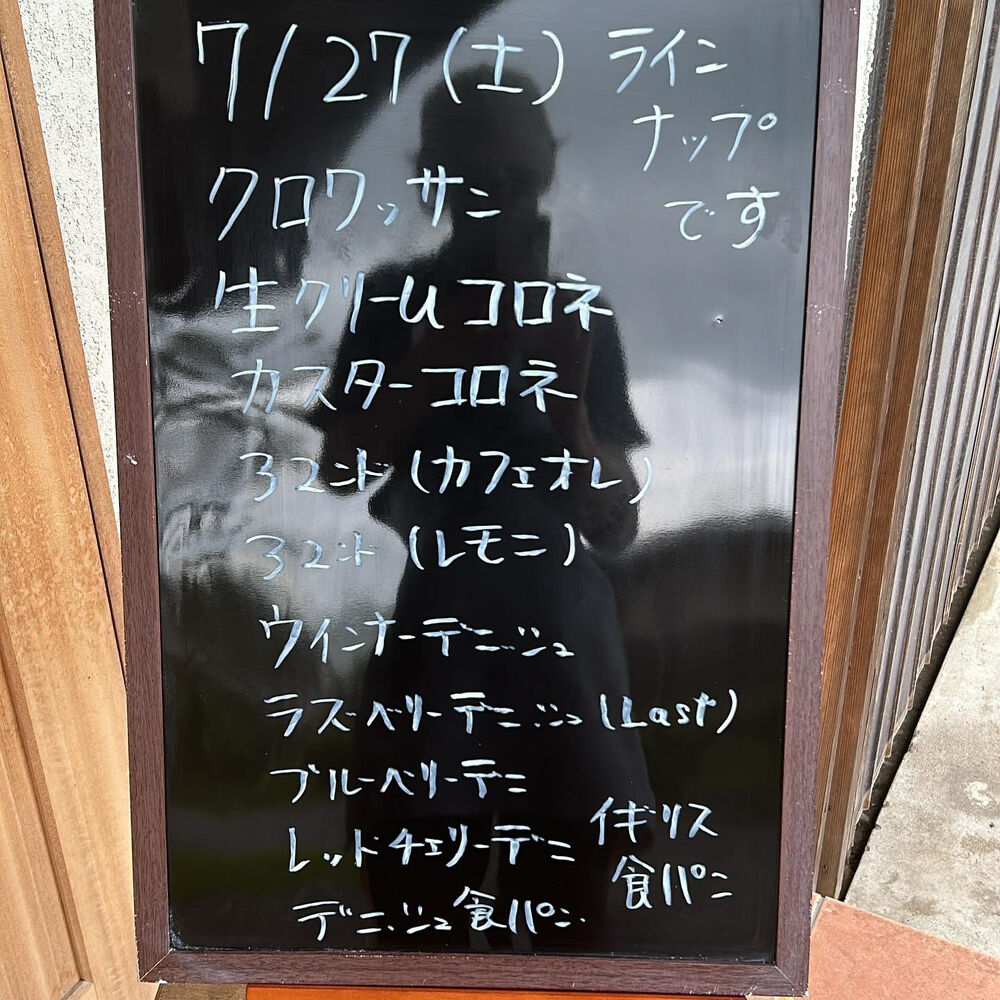 7/27(土)
ライン
ナップ
です
クロワッサン
生クリームコロネ
カスターコロネ
ろスンド(カフェオレ)
ろスンド(レモン)
ウインナーデニッシュ
ラズベリーデニッシュ(Last)
ブルーベリーデニ
レッドチェリーデニ
イギリス
食パン
デニッシュ食パン